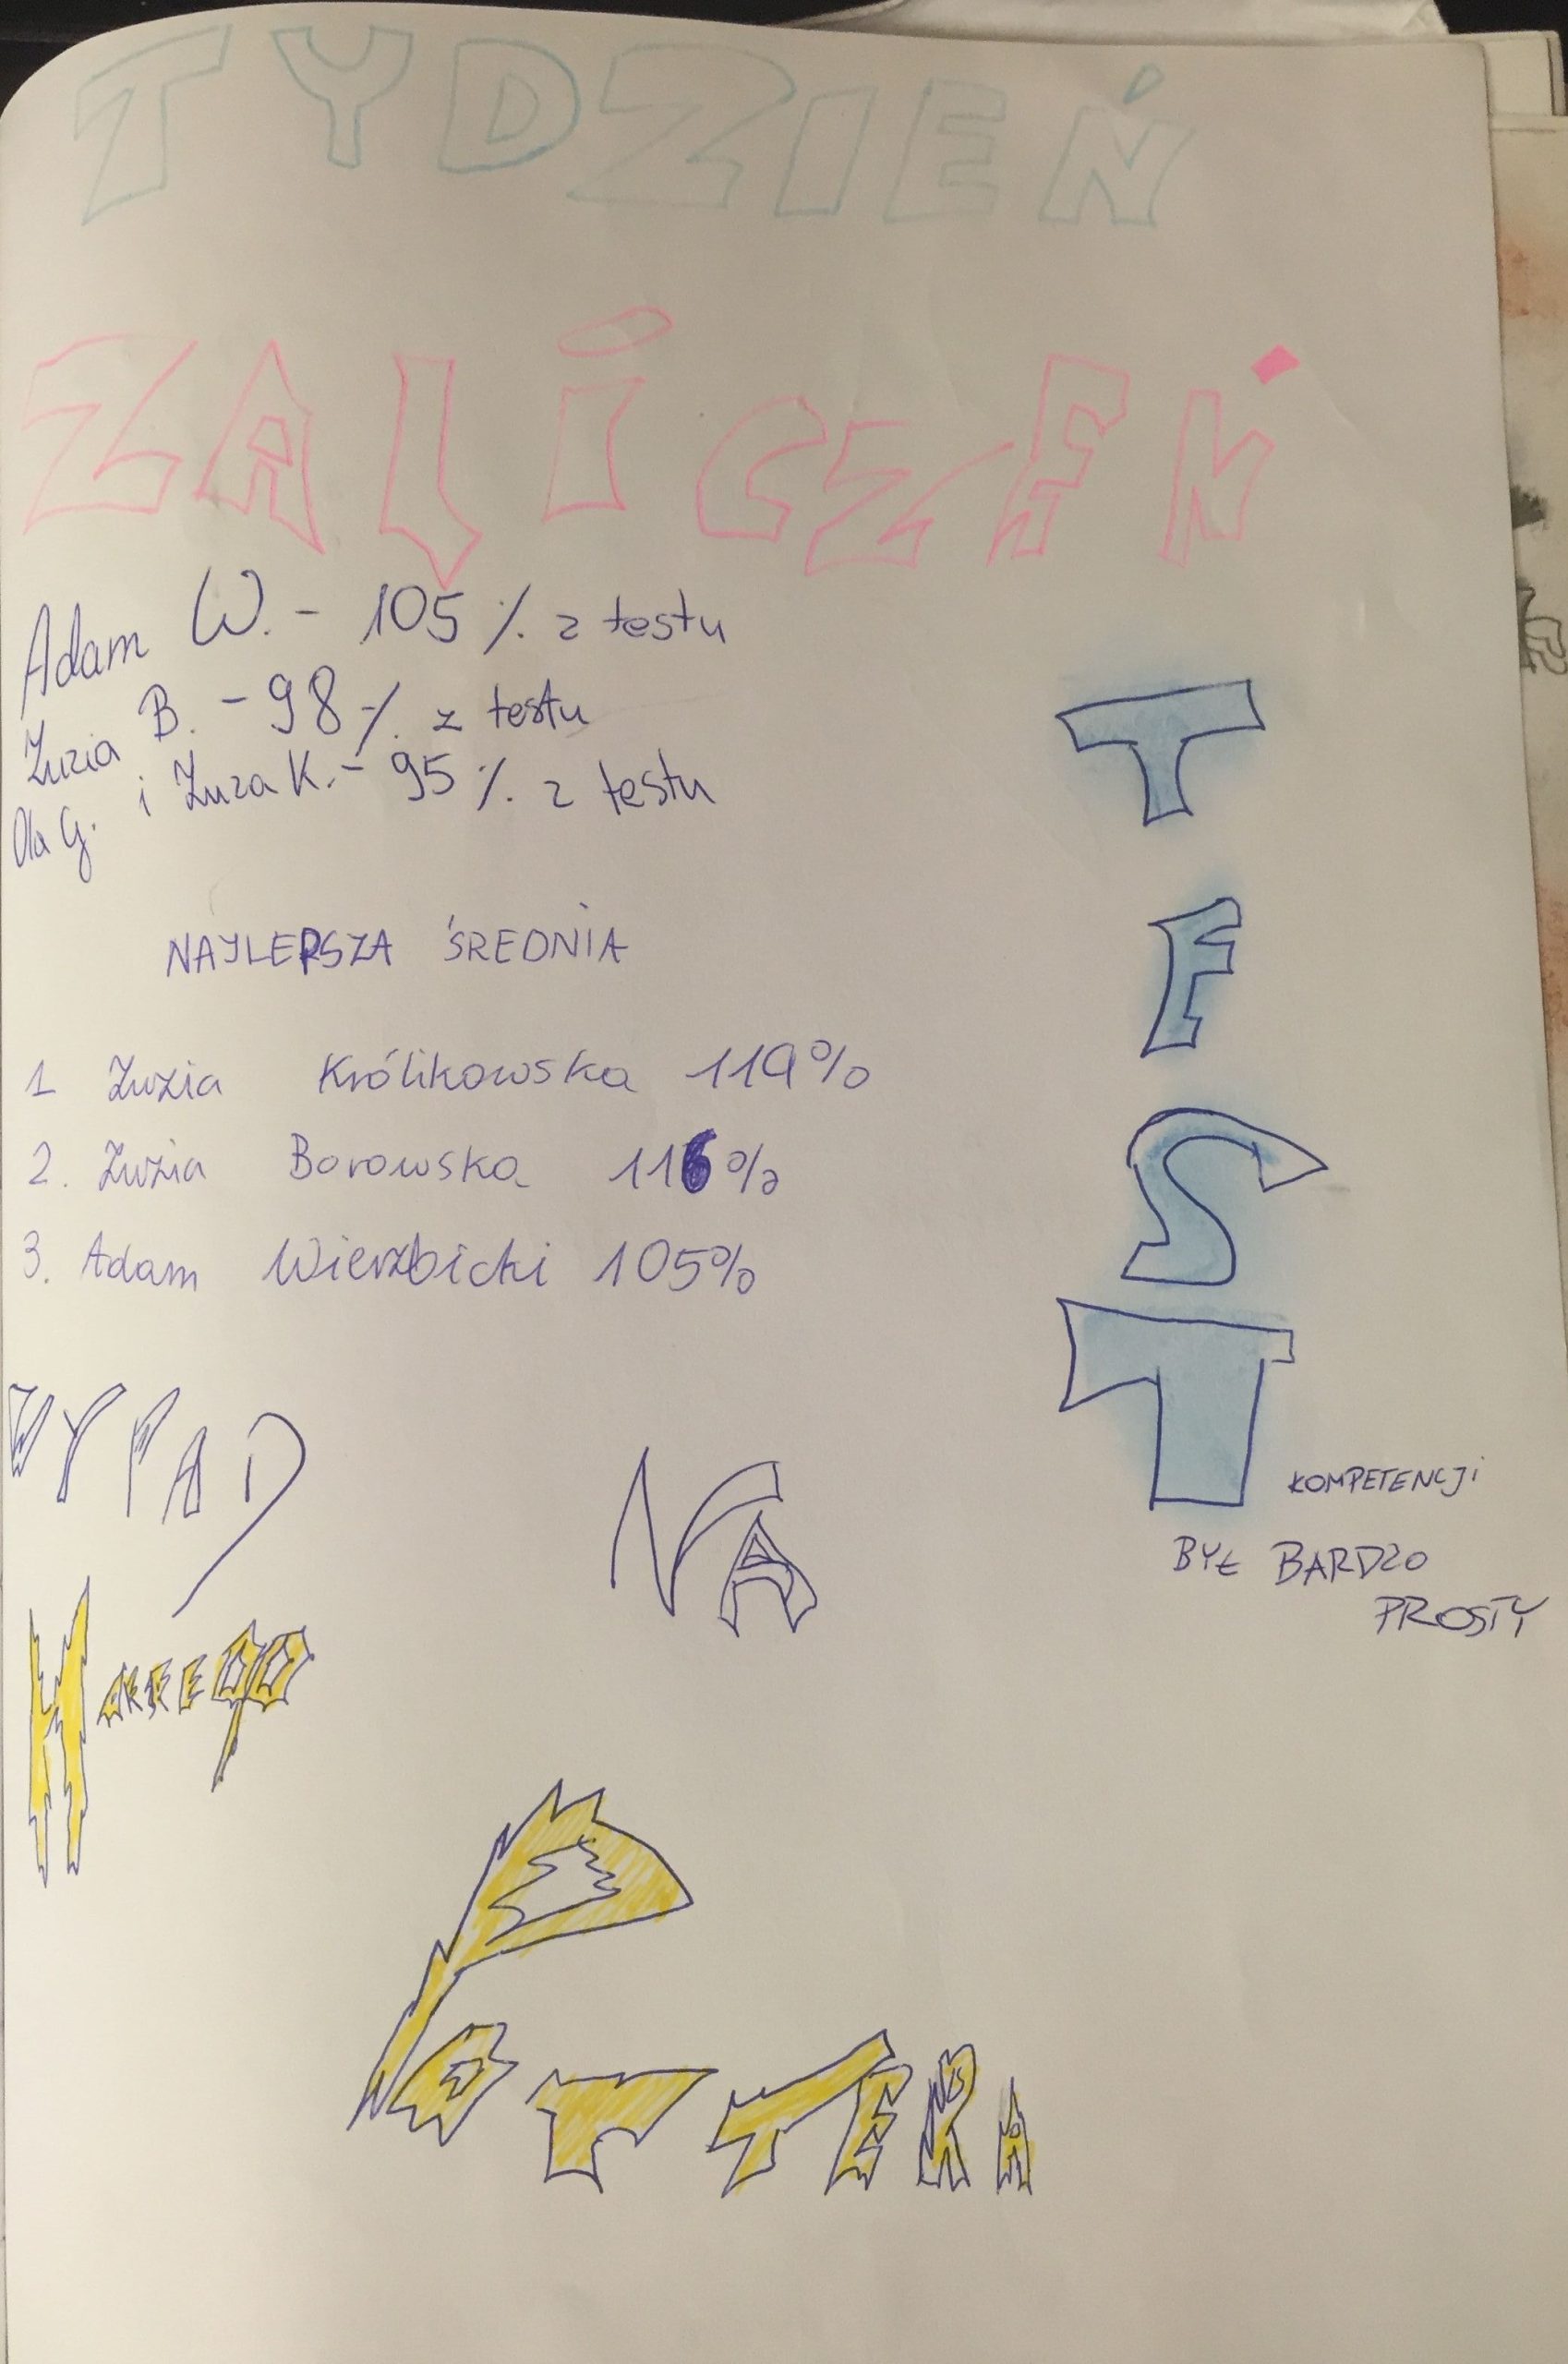 TYDZIEŃ
ZALiCZEŃ
Adam W. - 105 % z testu
Zuzia B. - 98 % z testu
Ola G. i Zuza K. - 95 % z testu
NAJLEPSZA ŚREDNIA
1 Zuzia Królikowska 119%
2. Zuzia Borowska 116%
3. Adam Wierzbicki 105%
TEST
KOMPETENCJi
BYŁ BARDZO
PROSTY
WYPAD NA
HAREGO
POTTERA